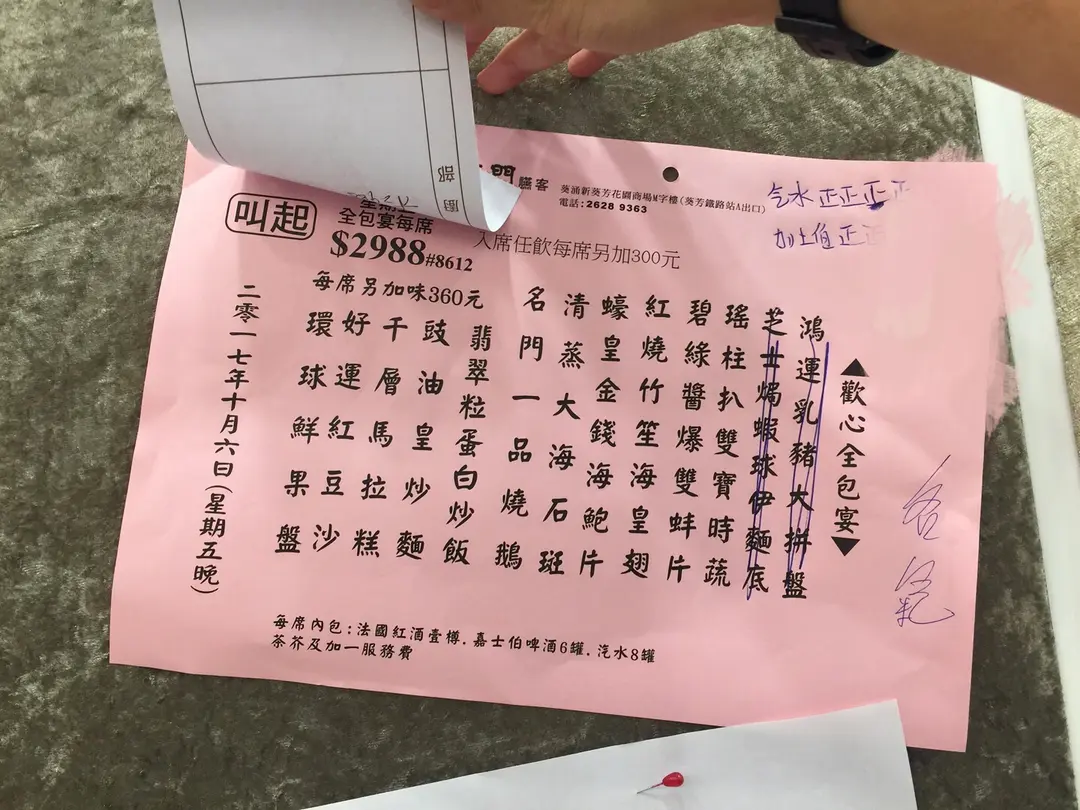 廚部
門
囍客
葵涌新葵芳花園商場M字樓(葵芳鐵路站A出口)
電話:2628 9363
汽水 正正正正
加士伯 正正
叫起
全包宴每席
$2988#8612
入席任飲每席另加300元
每席另加味360元
▲歡心全包宴▼
鴻運乳豬大拼盤
芝士焗蝦球伊麵底
瑤柱扒雙寶時蔬
碧綠醬爆雙蚌片
紅燒竹笙海皇翅
蠔皇金錢海鮑片
清蒸大海石斑
名門一品燒鵝
翡翠粒蛋白炒飯
豉油皇炒麵
千層馬拉糕
好運紅豆沙
環球鮮果盤
二零一七年十月六日(星期五晚)
每席內包:法國紅酒壹樽.嘉士伯啤酒6罐.汽水8罐
茶芥及加一服務費